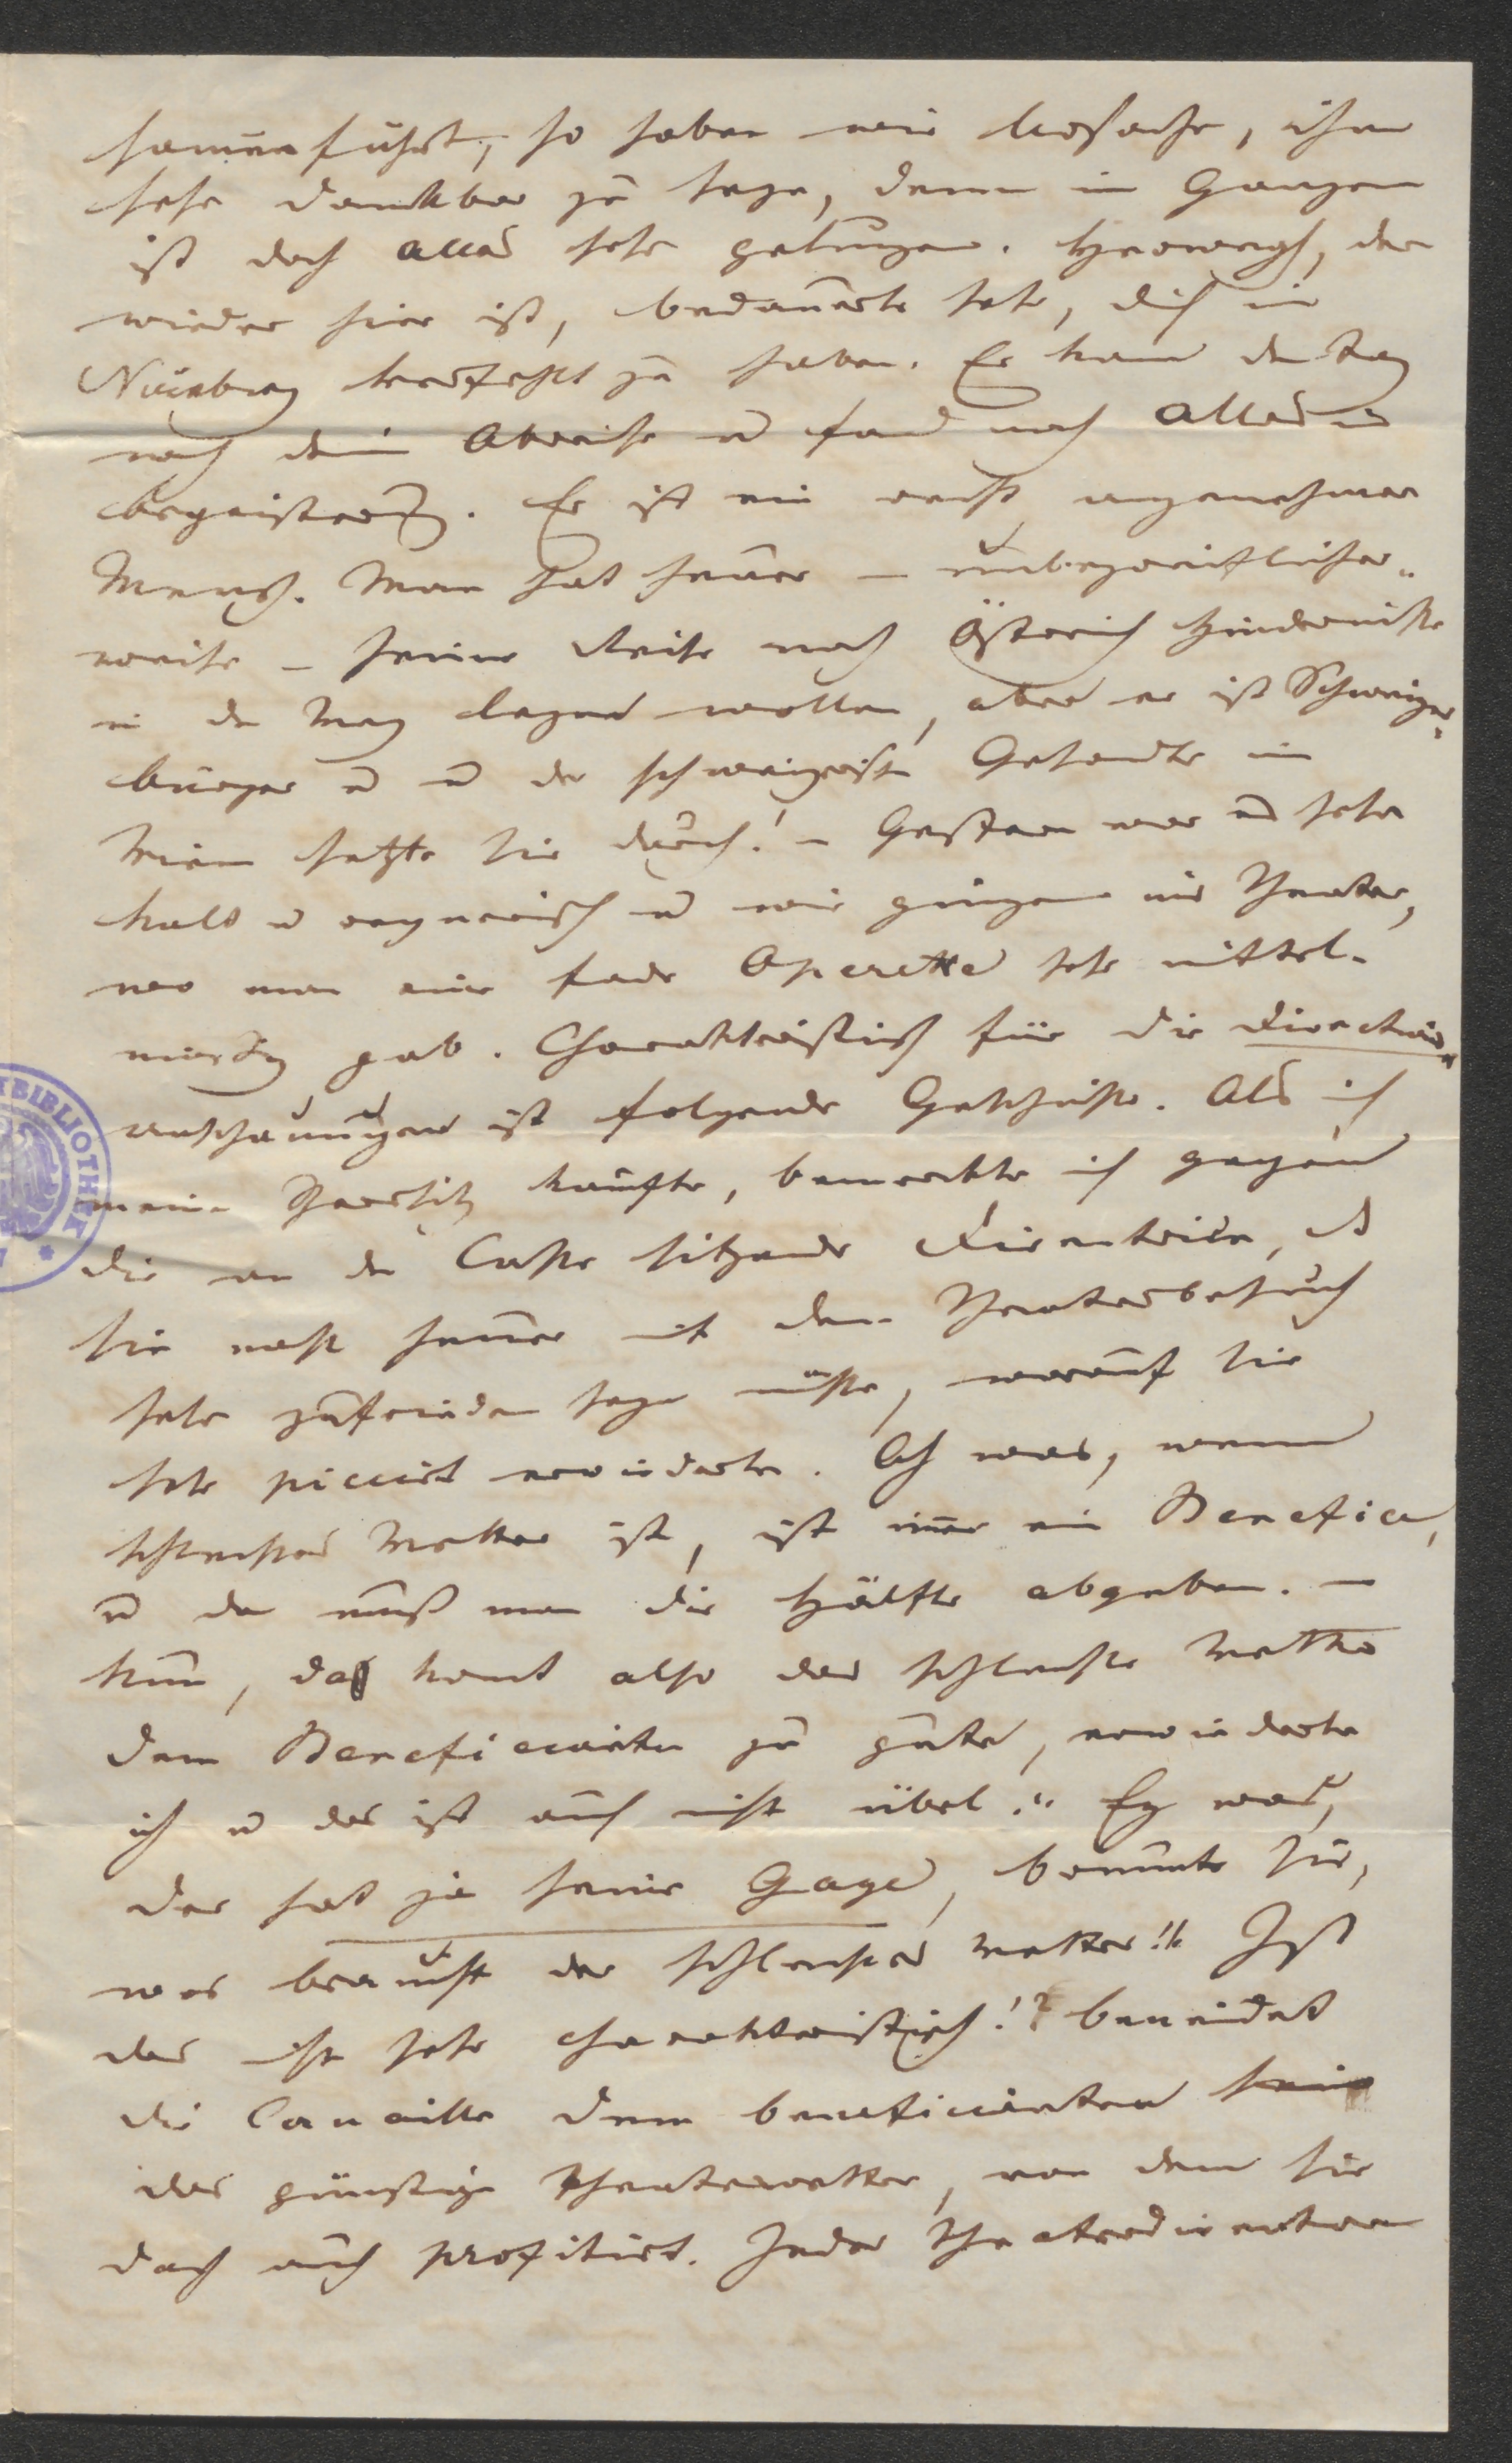 sammenführt, so haben wir Ursache, ihm
sehr dankbar zu seyn, denn im Ganzen
ist doch alles sehr gelungen. Herwegh, der
wieder hier ist, bedauerte sehr, dich in
Nürnberg verfehlt zu haben. Er kam den Tag
nach deiner Abreise u fand noch Alles
begeistert. Er ist ein recht angenehmer
Mensch. Man hat heuer – unbegreiflicher„
weise – seiner Reise nach Östreich Hindernisse
in den Weg legen wollen, aber er ist Schweizer„
bürger u der schweizerische Gesandte in
Wien setzte sie durch! – Gestern war es sehr
kalt u regnerisch u wir gingen ins Theater,
wo man eine fade Operette sehr mittel-
mäßig gab. Charakteristisch für die Directions„
anschauungen ist folgende Geschichte. Als ich
meinen Sperrsitz kaufte, bemerkte ich gegen
die an der Casse sitzende Direktrice, daß
sie wohl heuer mit dem Theaterbesuch
sehr zufrieden seyn müsse, worauf sie
sehr piccirt erwiederte. Ach was, wenn
schlechtes Wetter ist, ist immer ein Benefice,
u da muß man die Hälfte abgeben. –
Nun, da kommt also das schlechte Wetter
dem Beneficianten zu gute, erwiederte
ich u das ist auch nicht übel." Ey was,
der hat ja seine Gage, brummte sie,
was braucht der schlechtes Wetter!" Ist
das nicht sehr charakteristisch!? beneidet
die Canaille dem beneficianten
das günstige Theaterwetter, von dem sie
doch auch profitirt. Jeder Theaterdirector
BIBLIOTHEK